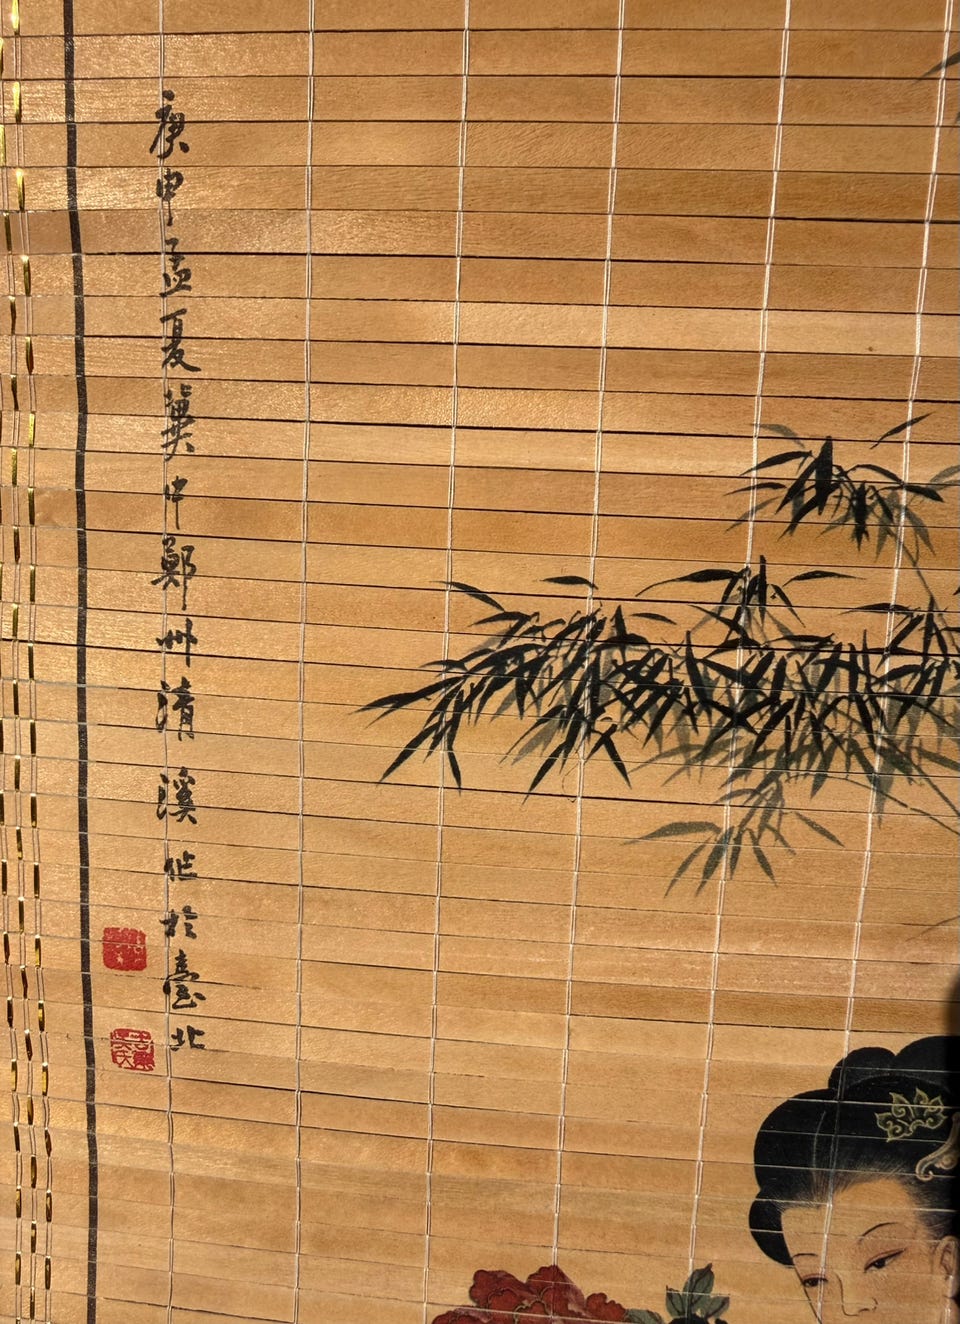 庚申孟夏冀中鄭州清溪作於臺北